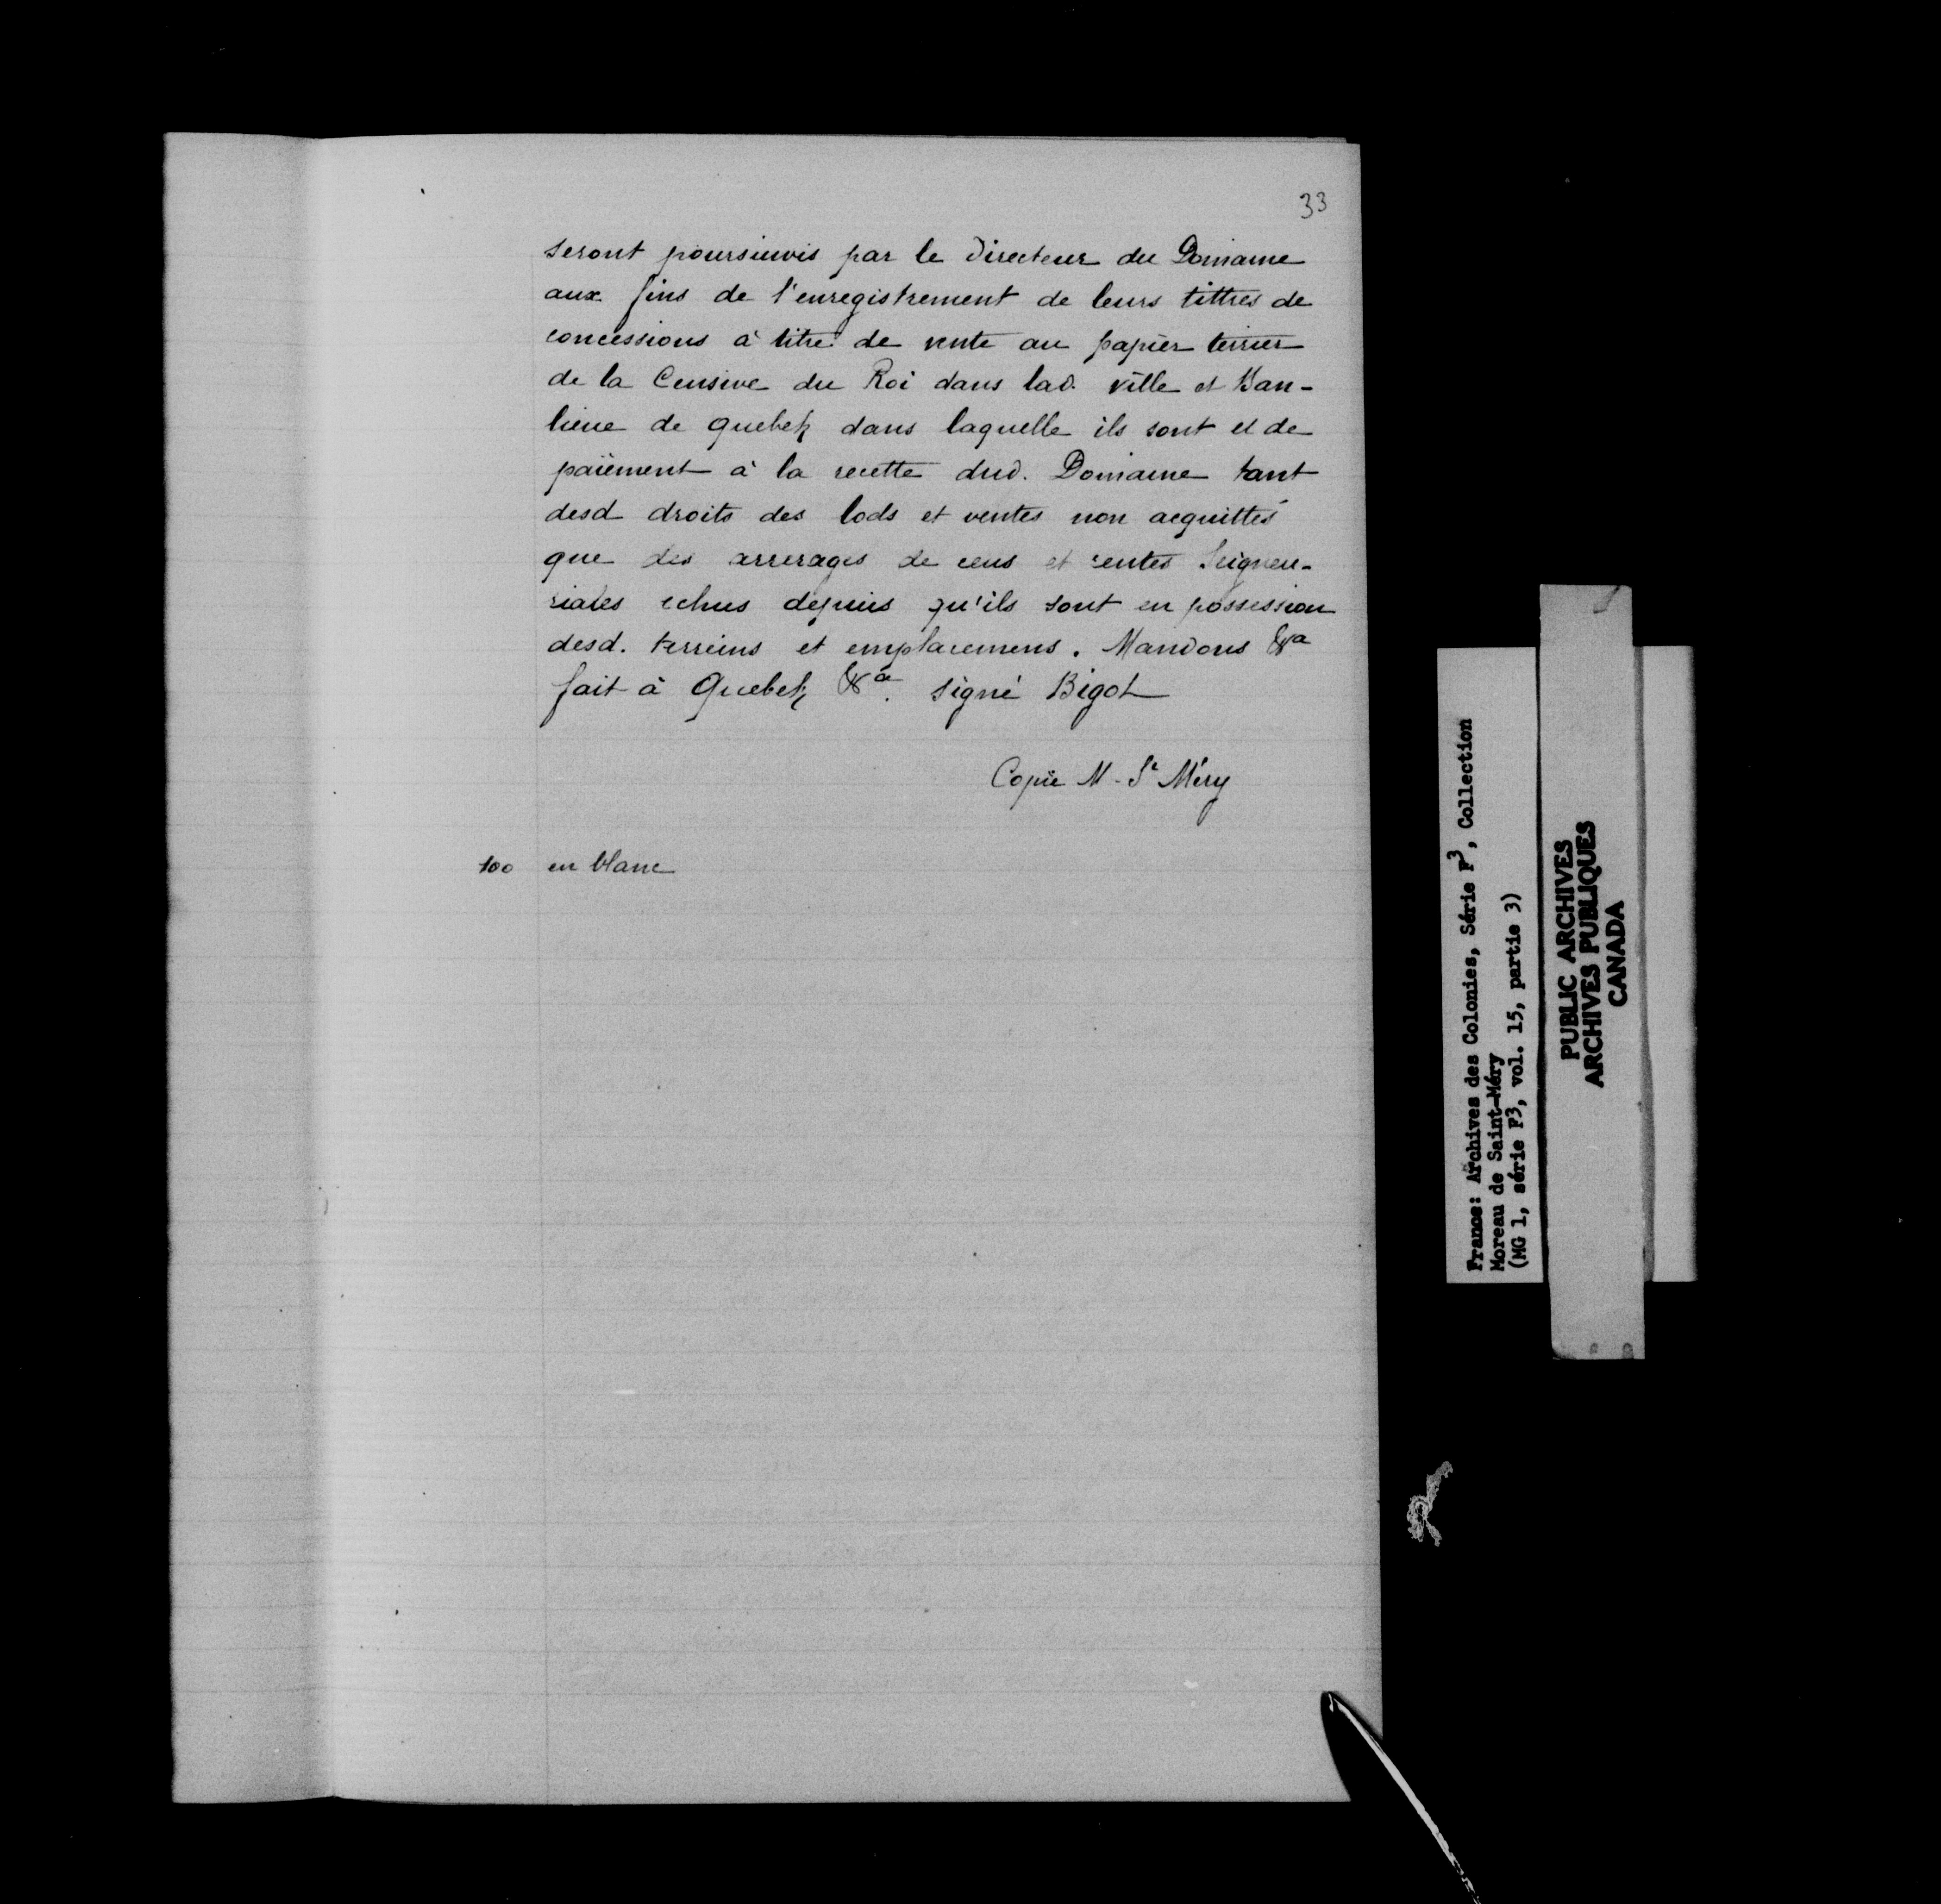 33
seront poursuivis par le Directeur du Domaine
aux fins de l'enregistrement de leurs tittres de
concessions à titre de vente au papier terrier
de la Censive du Roi dans lad. ville et Ban-
lieue de Quebek dans laquelle ils sont et de
païement à la recette dud. Domaine tant
desd droits des lods et ventes non acquittés
que des arrerages de cens et rentes Seigneu-
riales echus depuis qu'ils sont en possession
desd. terreins et emplacemens. Mandons &a
fait à Quebek &a. signé Bigot
Copie M. St Méry
100 en blanc
France: Archives des Colonies, Série F3, Collection
Moreau de Saint-Méry
(MG 1, série F3, vol. 15, partie 3)
PUBLIC ARCHIVES
ARCHIVES PUBLIQUES
CANADA